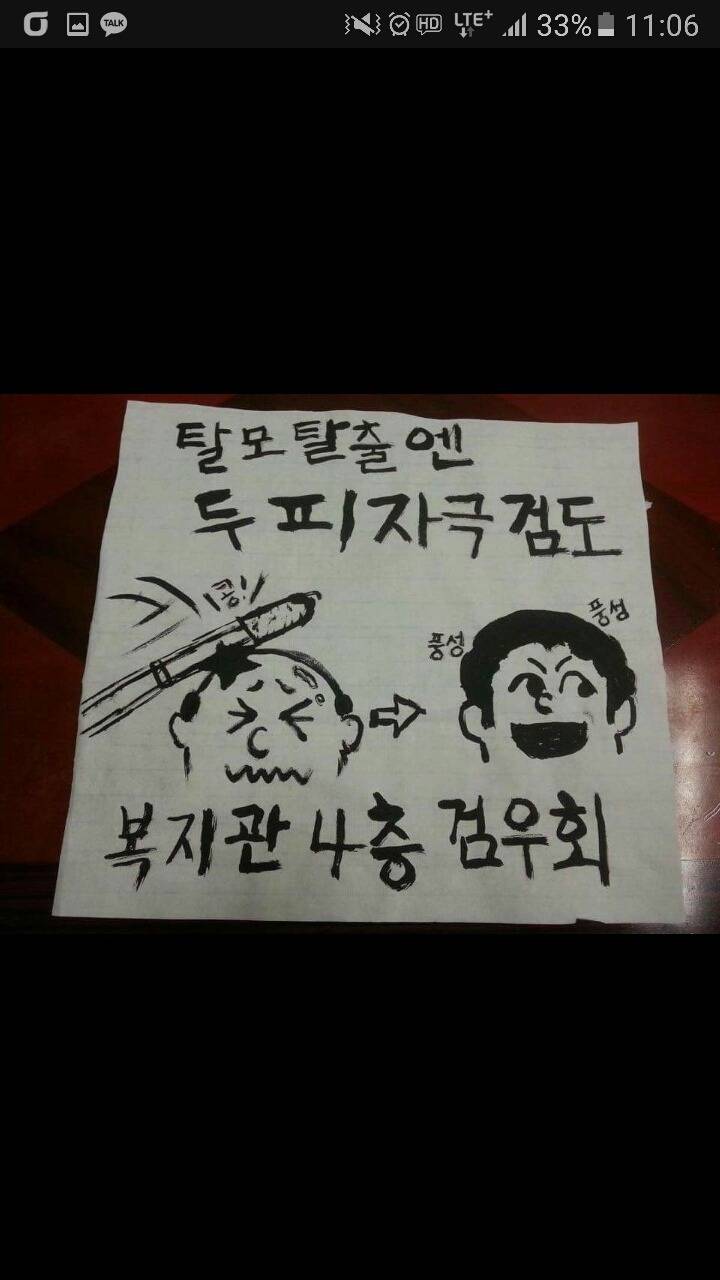 TALK HD LTE+ 33% 11:06
탈모 탈출엔
두피자극 검도
콩!
풍성
풍성
복지관 4층 검우회